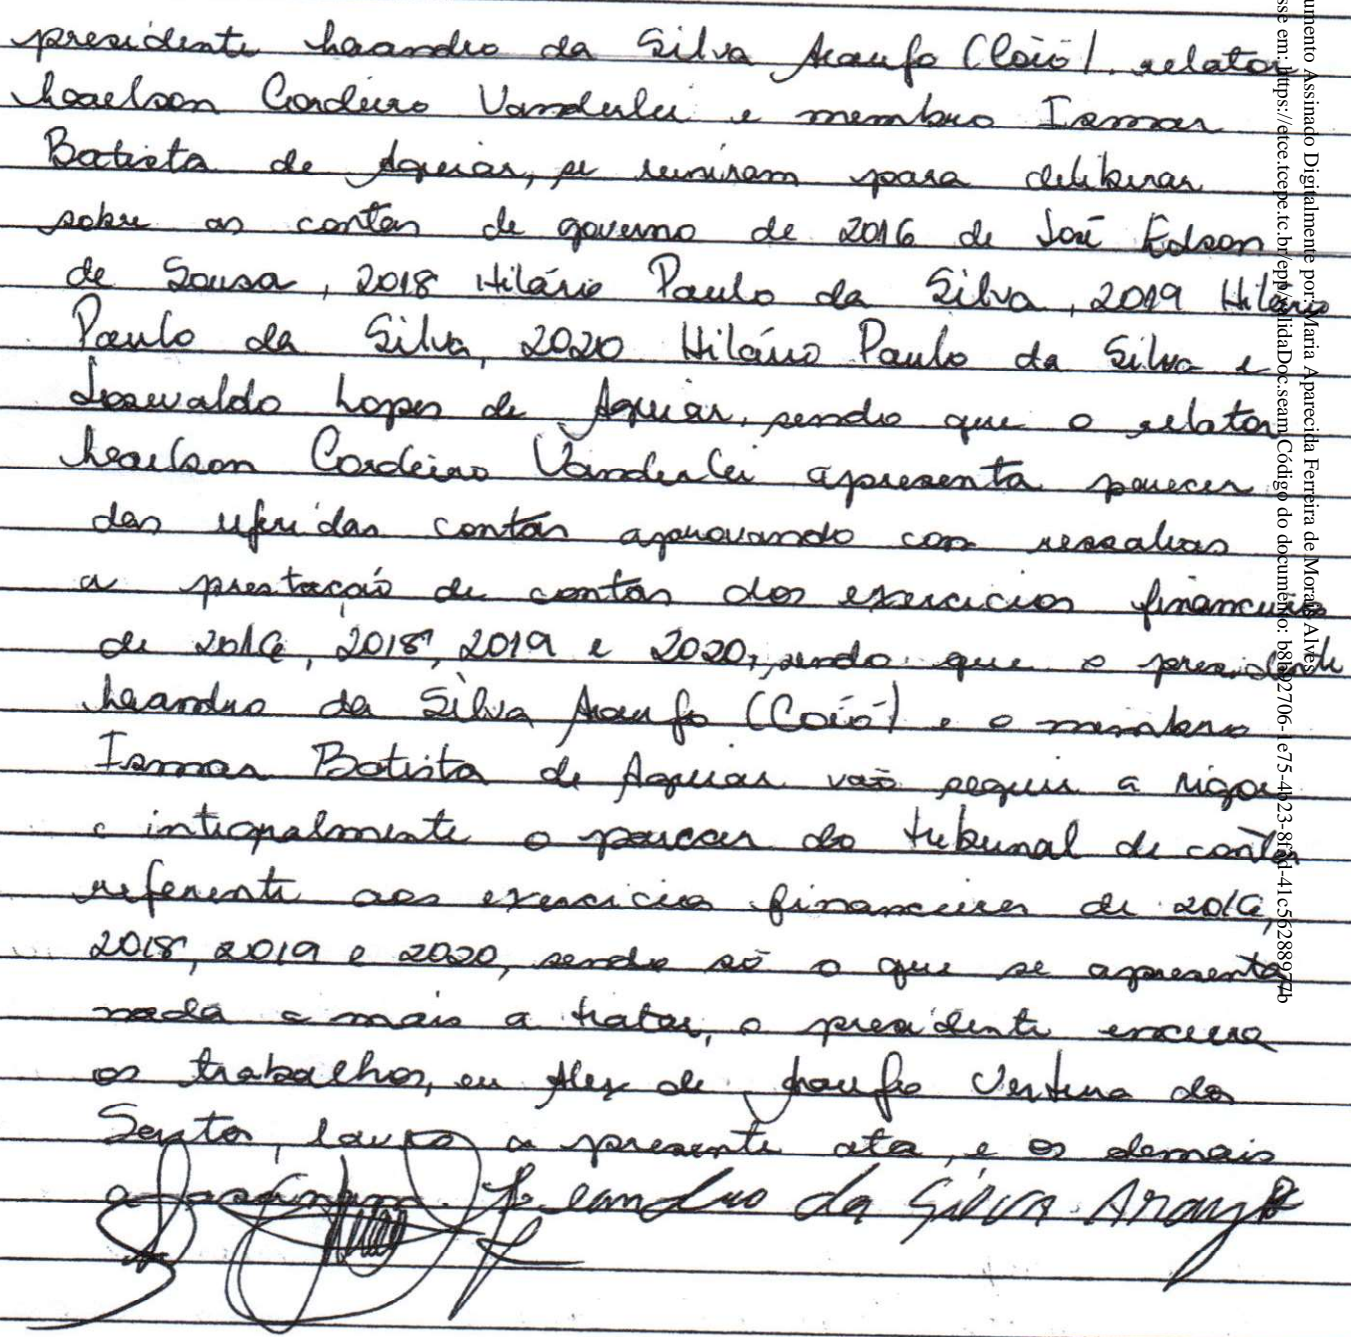 presidente Leandro da Silva Araujo (Coió), relator
Leaelson Cordeiro Vanderlei e membro Ismar
Batista de Aguiar, se reuniram para deliberar
sobre as contas de governo de 2016 de José Edson
de Sousa, 2018 Hilário Paulo da Silva, 2019 Hilário
Paulo da Silva, 2020 Hilário Paulo da Silva e
Lopes de Aguiar, sendo que o relator
Leaelson Cordeiro Vanderlei apresenta parecer
das referidas contas aprovando com ressalvas
a prestação de contas dos exercicios financeiros
de 2016, 2018, 2019 e 2020, sendo que o presidente
Leandro da Silva Araujo (Coió) e o membro
Ismar Batista de Aguiar vão seguir a rigor
e integralmente o parecer do tribunal de contas
referente aos exercicios financeiros de 2016,
2018, 2019 e 2020, sendo só o que se apresenta
nada a mais a tratar, o presidente encerra
os trabalhos, eu Alex de Araujo Ventura dos
Santos, lavro a presente ata, e os demais
assinam. Leandro da Silva Araujo
umento Assinado Digitalmente por: Maria Aparecida Ferreira de Morais Alves
sse em: https://etce.tcepe.tc.br/epp/validaDoc.seam Código do documento: